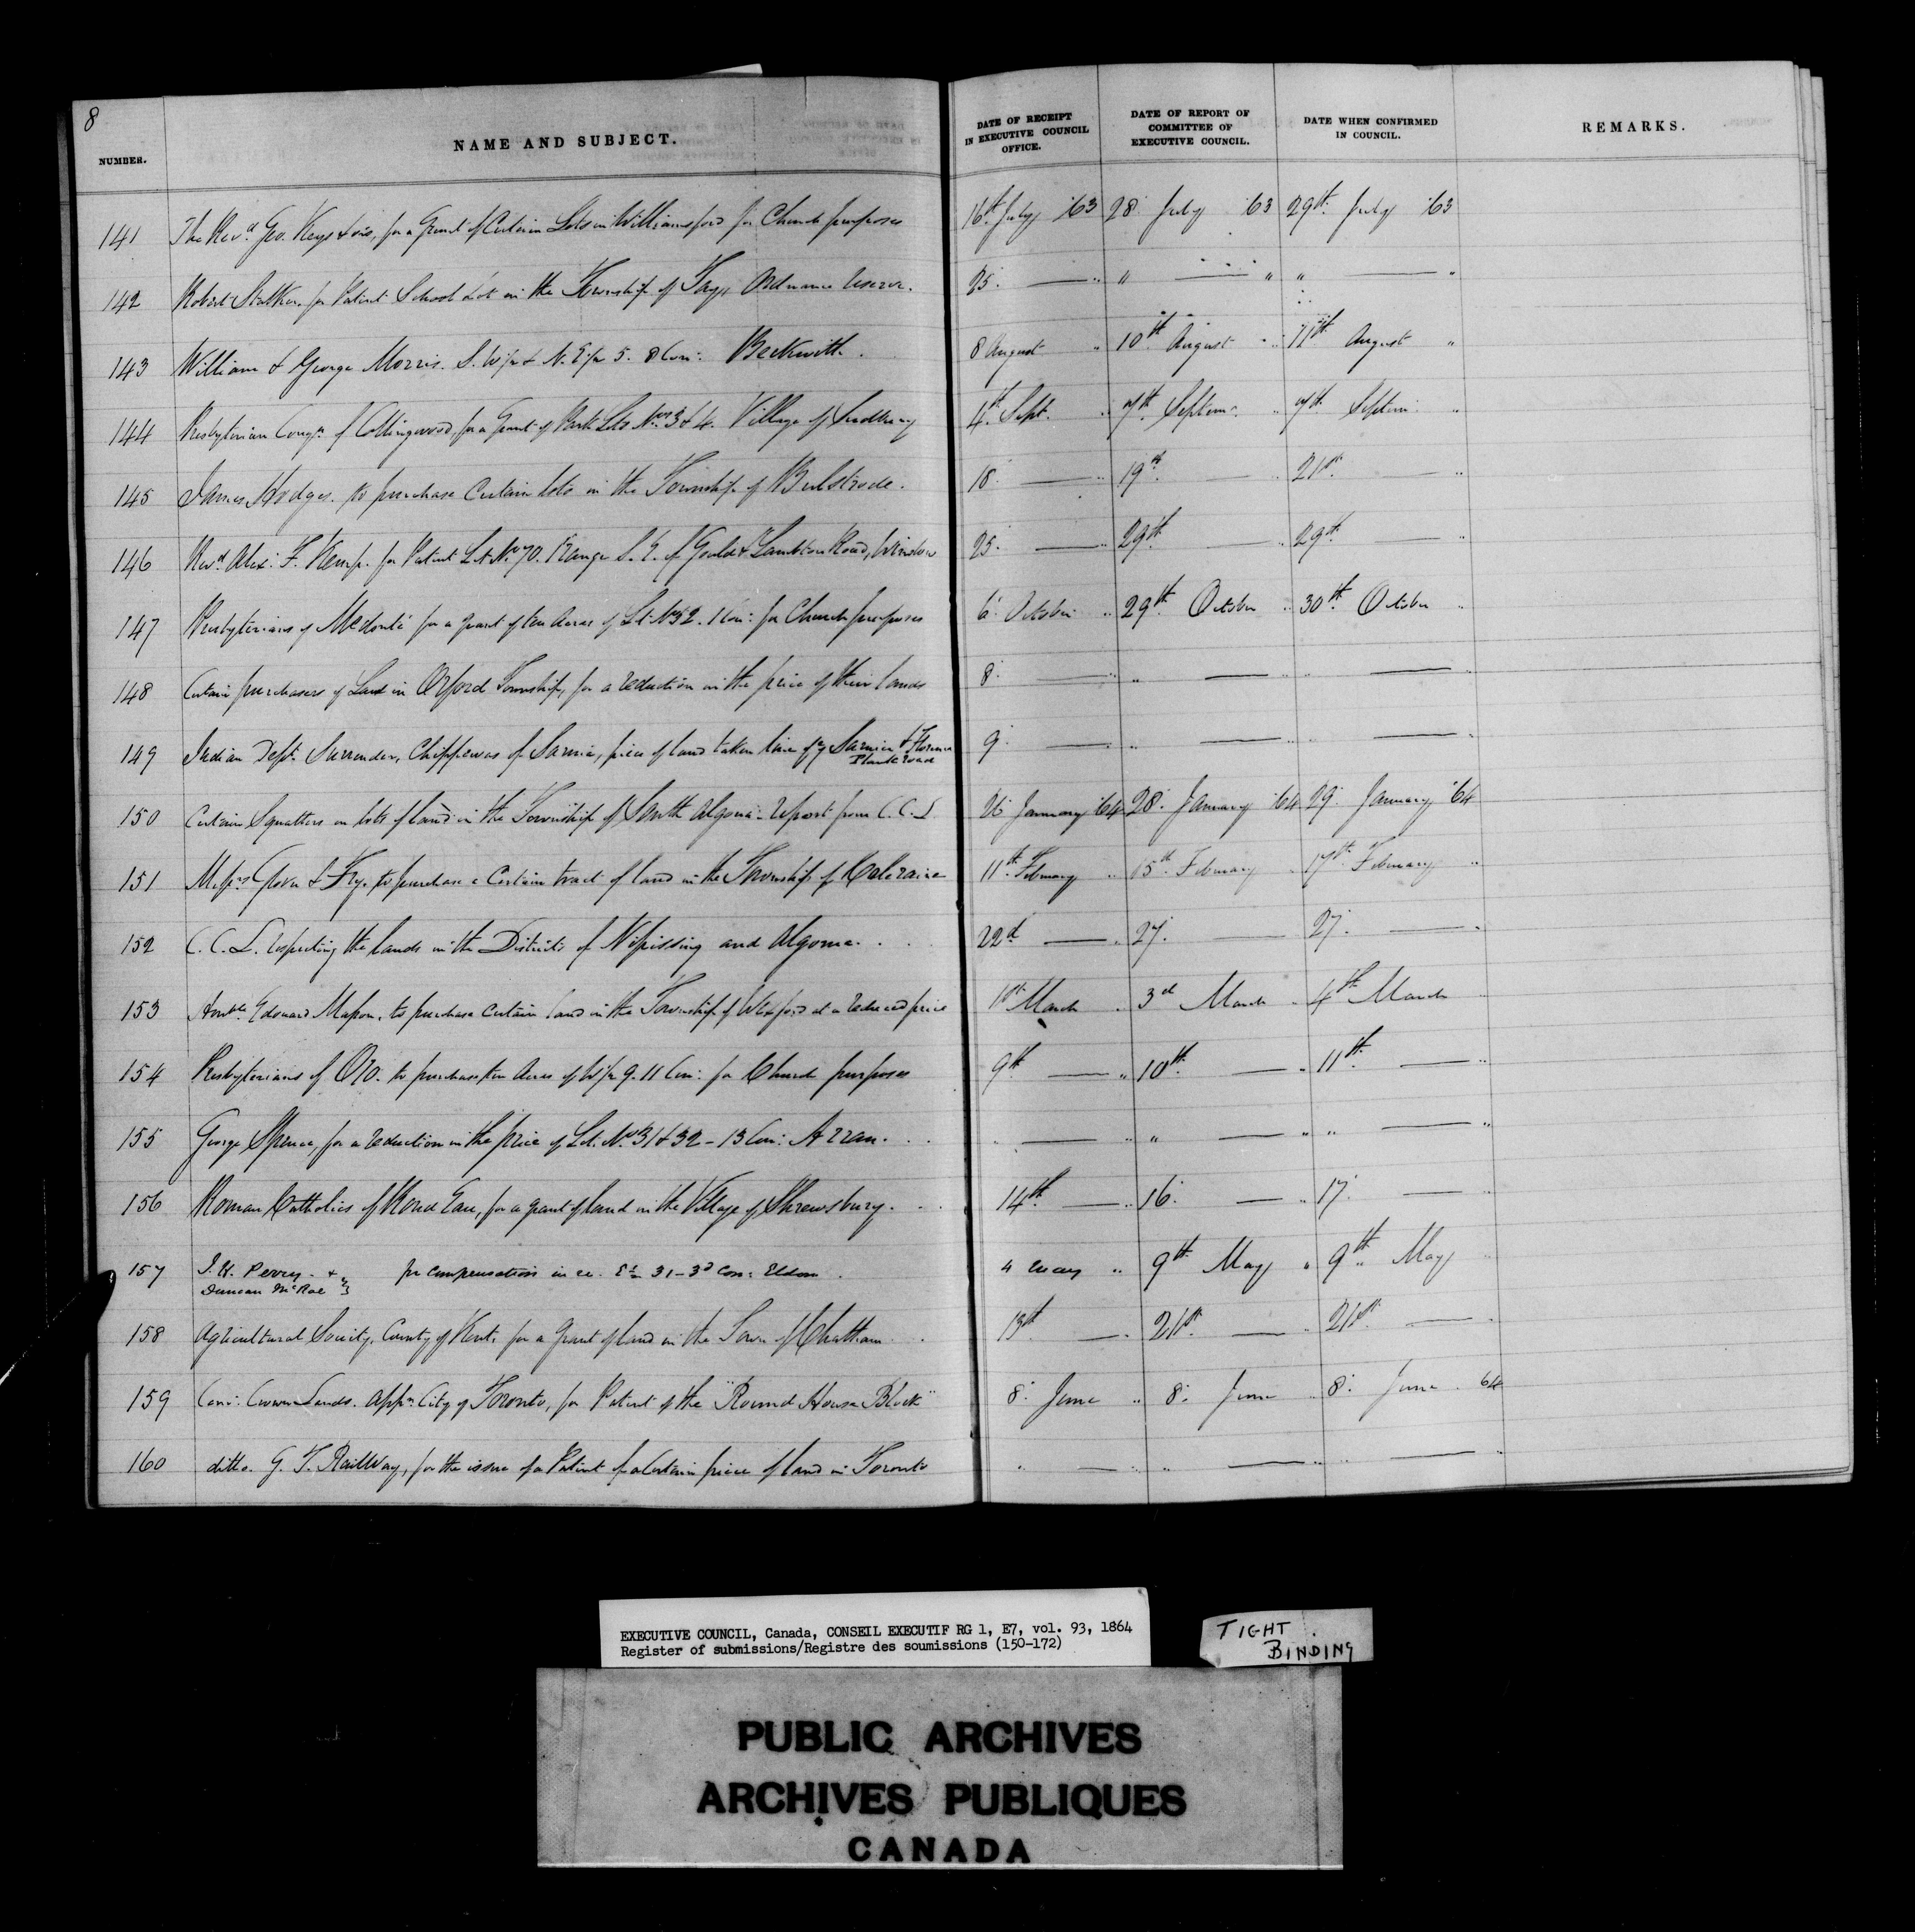 8
NUMBER. NAME AND SUBJECT. DATE OF RECEIPT IN EXECUTIVE COUNCIL OFFICE. DATE OF REPORT OF COMMITTEE OF EXECUTIVE COUNCIL. DATE WHEN CONFIRMED IN COUNCIL. REMARKS.
141 The Revd. Geo. Keys & ors, for a Grant of Certain Lots in Williamsford for Church purposes 16th July '63 28 July '63 29th July '63
142 Robert Stalker for Patent School Lot in the Township of Tay, Ordnance Reserve. 25. — " " — " " — "
143 William & George Morris. S. W/pt & N. E/pt 5. 8 Con: Beckwith. 8 August " 10th August " 11th August "
144 Presbyterian Congn. of Collingwood, for a Grant of Park Lots Nos 3 & 4. Village of 4th Sept. " 7th Septem. " 7th Septem. "
145 James Hodges. to purchase Certain lots in the Township of Bulstrode. 18 — " 19th — " 21st — "
146 Revd. Alex: F. Kemp. for Patent Lot No. 70. Range S. E. of Gould & Lambton Road, Winslow 25. — " 29th — " 29th — "
147 Presbyterians of Medonte for a grant of ten Acres of Lt. No 52. 1 Con: for Church purposes 6 October " 29th October " 30th October "
148 Certain purchasers of Land in Orford Township, for a reduction in the price of their lands 8 — " " — " " — "
149 Indian Dept. Surrender, Chippewas of Sarnia, piece of land taken line of ye Sarnia & Florence Plank road 9 — " " — " " — "
150 Certain Squatters on lots of land in the Township of South Algona - report from C.C.L 26 January '64 28. January '64 29. January '64
151 Messrs Glover & Fry. to purchase a Certain tract of land in the Township of Coleraine 11th February " 15th February " 17th February "
152 C. C. L. respecting the lands in the Districts of Nipissing and Algoma. 22d — " 27. — " 27. — "
153 Honble Edouard Masson. to purchase certain land in the Township of Wexford at a reduced price 1st March " 3d March " 4th March "
154 Presbyterians of Oro. to purchase ten Acres of W/pt 9. 11 Con: for Church purposes 9th — " 10th — " 11th — "
155 George Spence, for a reduction in the price of Lt. Nos 31 & 32 - 13 Con: Arran. " — " " — " " — "
156 Roman Catholics of Rond Eau, for a grant of land in the Village of Shrewsbury. 14th — " 16. — " 17. — "
157 J. H. Perry - & Duncan McRae } for compensation in re. E½ 31 - 3d Con: Eldon. 4 May " 9th May " 9th May "
158 Agricultural Society, County of Kent, for a grant of land in the Town of Chatham 13th — " 21st — " 21st — "
159 Com: Crown Lands. Appn. City of Toronto, for Patent of the "Round House Block" 8. June " 8. June " 8. June 64
160 ditto. G. T. Railway, for the issue of a Patent for a Certain piece of land in Toronto " — " " — " " — "
EXECUTIVE COUNCIL, Canada, CONSEIL EXECUTIF RG 1, E7, vol. 93, 1864
Register of submissions/Registre des soumissions (150-172)
TIGHT BINDING
PUBLIC ARCHIVES
ARCHIVES PUBLIQUES
CANADA